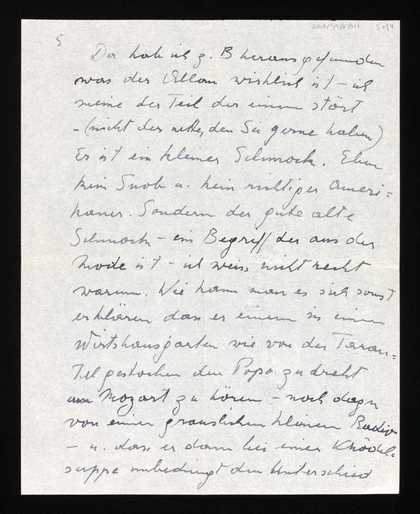 5
Da hab ich z. B herausgefunden
was der Ellan wirklich ist – ich
meine der Teil der einen stört
– (nicht der nette, den Sie gerne haben)
Er ist ein kleiner Schmock. Eben
kein Snob u. kein richtiger Ameri=
kaner. Sondern der gute alte
Schmock – ein Begriff der aus der
Mode ist – ich weiss nicht recht
warum. Wie kann man es sich sonst
erklären dass er einem in einem
Wirtshausgarten wie von der Taran=
tel gestochen den Popo zudreht
um Mozart zu hören – noch dazu
von einem grauslichen kleinen Radio
– u. dass er dann bei einer Knödel=
suppe unbedingt den Unterschied